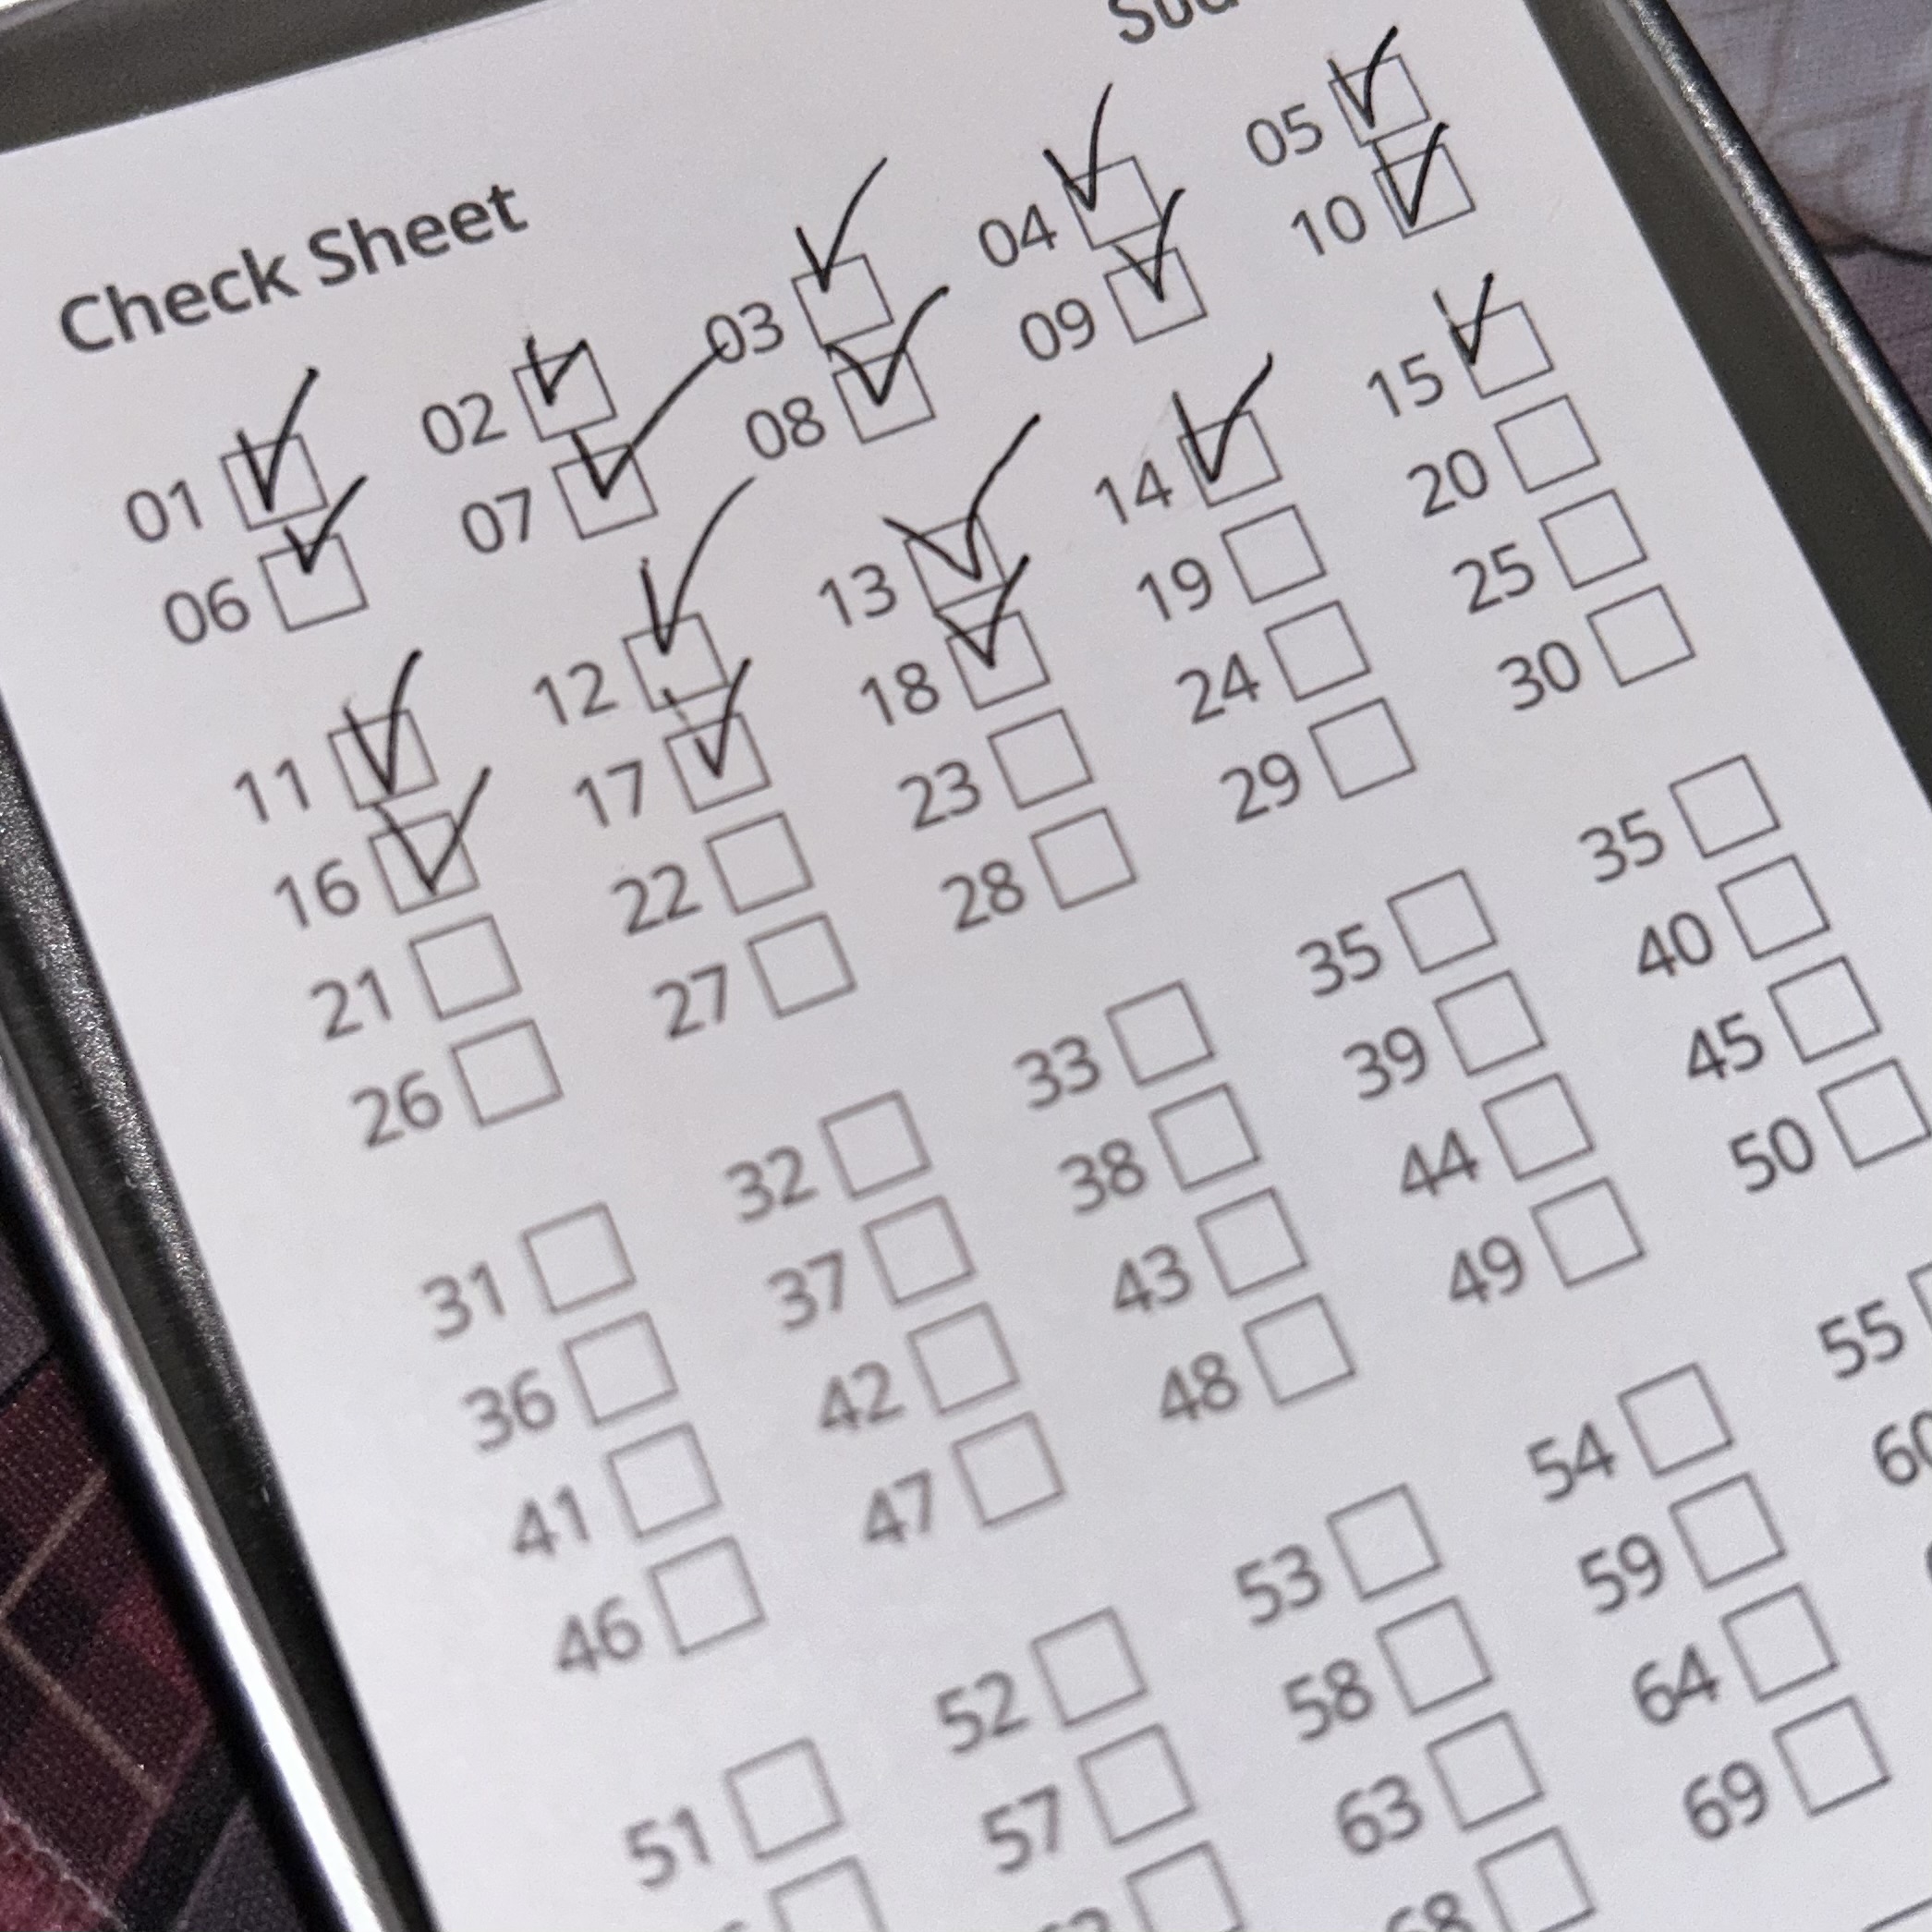 Check Sheet
01 02 03 04 05
06 07 08 09 10
11 12 13 14 15
16 17 18 19 20
21 22 23 24 25
26 27 28 29 30
31 32 33 35 35
36 37 38 39 40
41 42 43 44 45
46 47 48 49 50
51 52 53 54 55
57 58 59
63 64
69